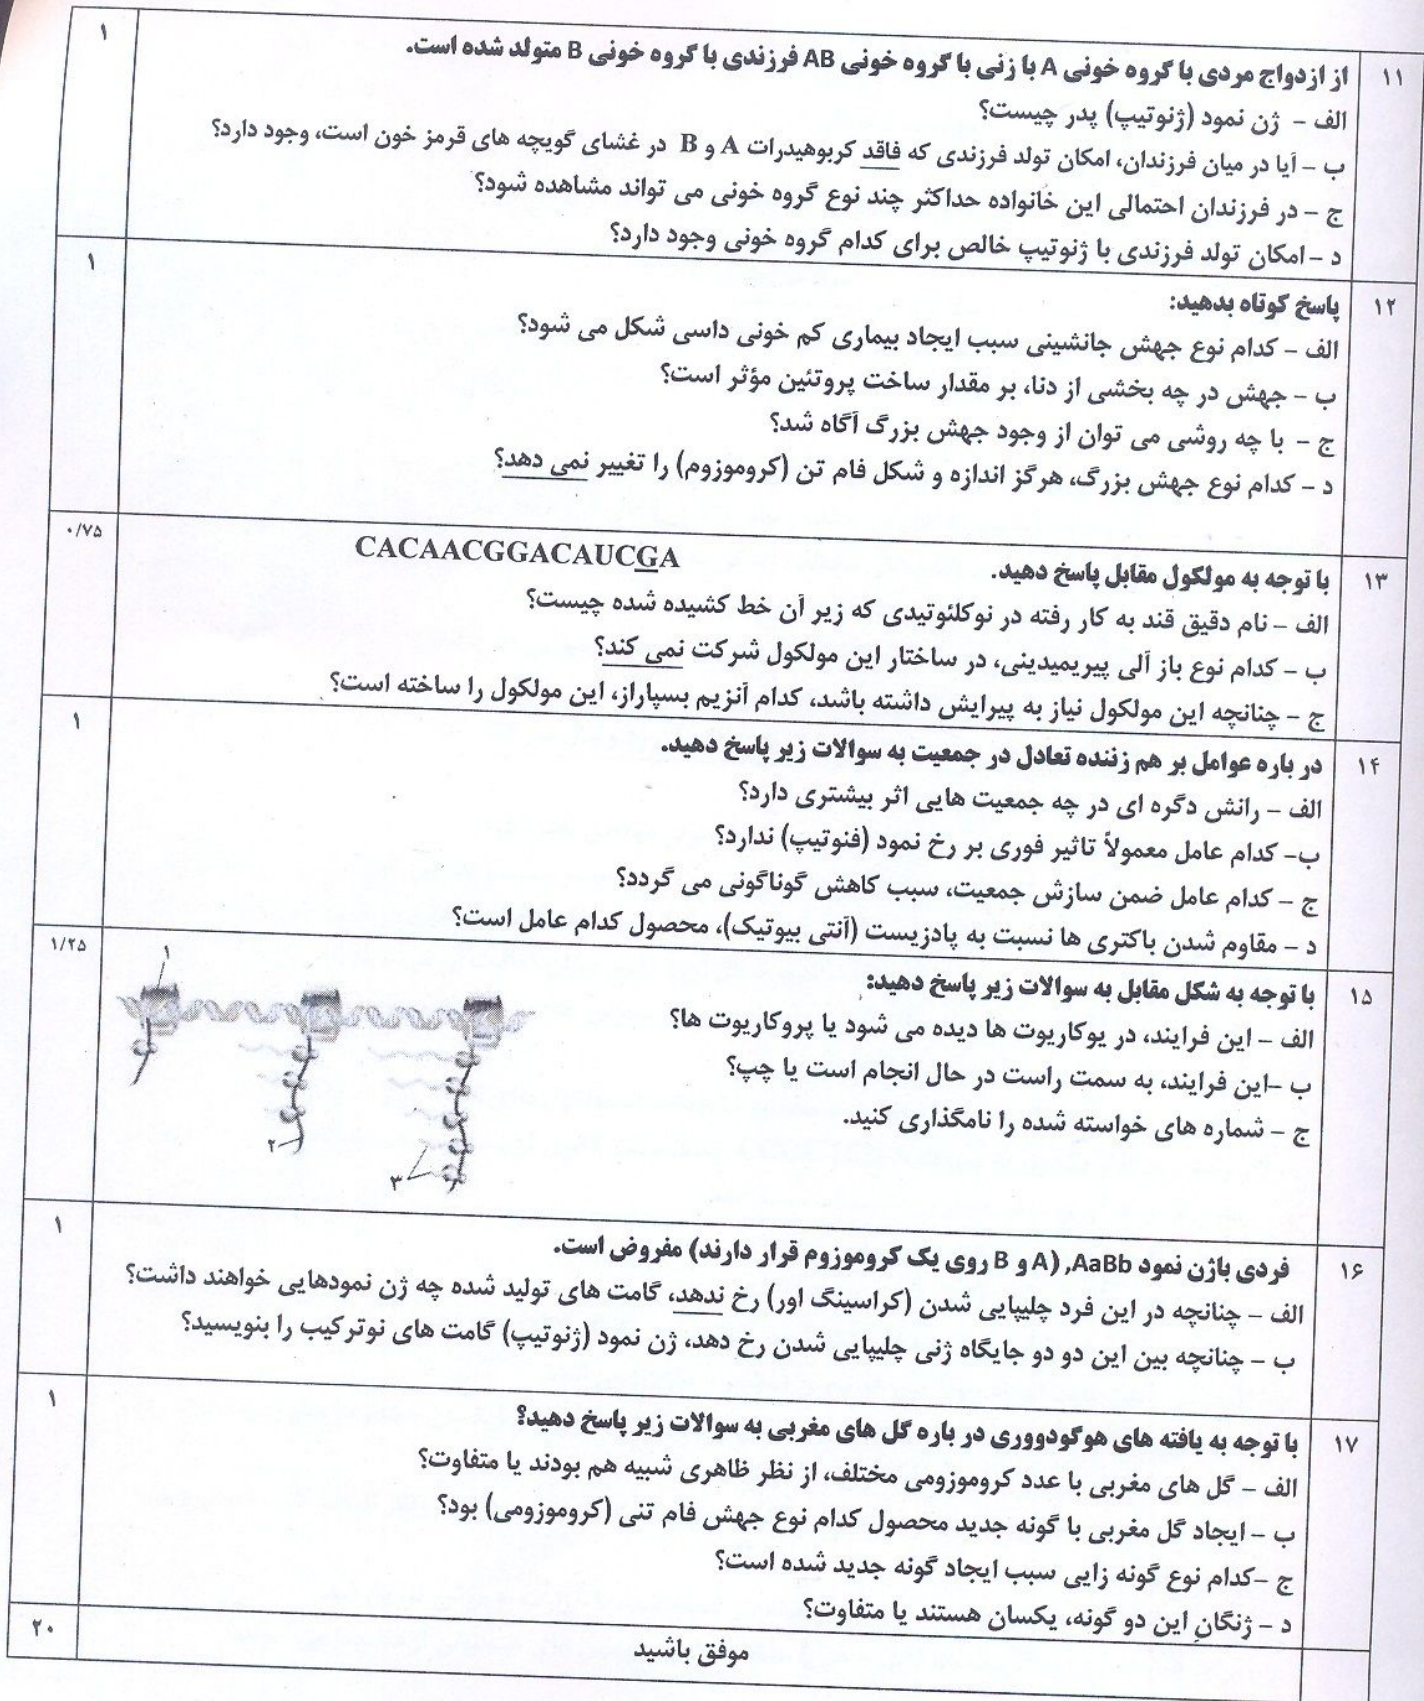 ۱۱ از ازدواج مردی با گروه خونی A با زنی با گروه خونی AB فرزندی با گروه خونی B متولد شده است. ۱
الف - ژن نمود (ژنوتیپ) پدر چیست؟
ب - آیا در میان فرزندان، امکان تولد فرزندی که فاقد کربوهیدرات A و B در غشای گویچه های قرمز خون است، وجود دارد؟
ج - در فرزندان احتمالی این خانواده حداکثر چند نوع گروه خونی می تواند مشاهده شود؟
د - امکان تولد فرزندی با ژنوتیپ خالص برای کدام گروه خونی وجود دارد؟
۱۲ پاسخ کوتاه بدهید: ۱
الف - کدام نوع جهش جانشینی سبب ایجاد بیماری کم خونی داسی شکل می شود؟
ب - جهش در چه بخشی از دنا، بر مقدار ساخت پروتئین مؤثر است؟
ج - با چه روشی می توان از وجود جهش بزرگ آگاه شد؟
د - کدام نوع جهش بزرگ، هرگز اندازه و شکل فام تن (کروموزوم) را تغییر نمی دهد؟
۱۳ با توجه به مولکول مقابل پاسخ دهید. CACAACGGACAUCGA ۰/۷۵
الف - نام دقیق قند به کار رفته در نوکلئوتیدی که زیر آن خط کشیده شده چیست؟
ب - کدام نوع باز آلی پیریمیدینی، در ساختار این مولکول شرکت نمی کند؟
ج - چنانچه این مولکول نیاز به پیرایش داشته باشد، کدام آنزیم بسپاراز، این مولکول را ساخته است؟
۱۴ در باره عوامل بر هم زننده تعادل در جمعیت به سوالات زیر پاسخ دهید. ۱
الف - رانش دگره ای در چه جمعیت هایی اثر بیشتری دارد؟
ب- کدام عامل معمولاً تاثیر فوری بر رخ نمود (فنوتیپ) ندارد؟
ج - کدام عامل ضمن سازش جمعیت، سبب کاهش گوناگونی می گردد؟
د - مقاوم شدن باکتری ها نسبت به پادزیست (آنتی بیوتیک)، محصول کدام عامل است؟
۱۵ با توجه به شکل مقابل به سوالات زیر پاسخ دهید: ۱/۲۵
الف - این فرایند، در یوکاریوت ها دیده می شود یا پروکاریوت ها؟
ب -این فرایند، به سمت راست در حال انجام است یا چپ؟
ج - شماره های خواسته شده را نامگذاری کنید.
۱
۲
۳
۱۶ فردی باژن نمود AaBb, (A و B روی یک کروموزوم قرار دارند) مفروض است. ۱
الف - چنانچه در این فرد چلیپایی شدن (کراسینگ اور) رخ ندهد، گامت های تولید شده چه ژن نمودهایی خواهند داشت؟
ب - چنانچه بین این دو دو جایگاه ژنی چلیپایی شدن رخ دهد، ژن نمود (ژنوتیپ) گامت های نوترکیب را بنویسید؟
۱۷ با توجه به یافته های هوگودووری در باره گل های مغربی به سوالات زیر پاسخ دهید؟ ۱
الف - گل های مغربی با عدد کروموزومی مختلف، از نظر ظاهری شبیه هم بودند یا متفاوت؟
ب - ایجاد گل مغربی با گونه جدید محصول کدام نوع جهش فام تنی (کروموزومی) بود؟
ج -کدام نوع گونه زایی سبب ایجاد گونه جدید شده است؟
د - ژنگانِ این دو گونه، یکسان هستند یا متفاوت؟
موفق باشید ۲۰